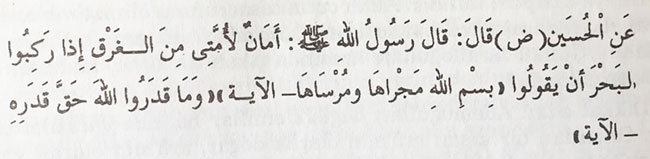 عَنِ الْحُسَين(ض)قَالَ: قَالَ رَسُولُ الله ﷺ: أَمَانٌ لأُمَّتِى مِنَ الـغَرْقِ إِذا رَكِبُوا
لبَحْرَ أَنْ يَقُولُوا «بِسْمِ اللهِ مَجْرَاهَا ومُرْسَاهَا— الآيـة» «وَمَا قَدَرُوا اللهَ حَقَّ قَدْرِهِ
— الآية»